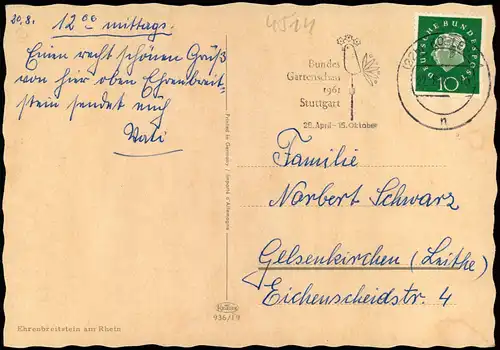 20.8.
12⁰⁰ mittags.
Einen recht schönen Gruß
von hier oben Ehrenbreit-
stein sendet euch
Vati
4514
Bundes
Gartenschau
1961
Stuttgart
28. April - 15. Oktober
DEUTSCHE BUNDESPOST
10
n
Familie
Norbert Schwarz
Gelsenkirchen (Leithe)
Eichenscheidstr. 4
Printed in Germany / Importé d'Allemagne
936/19
Ehrenbreitstein am Rhein